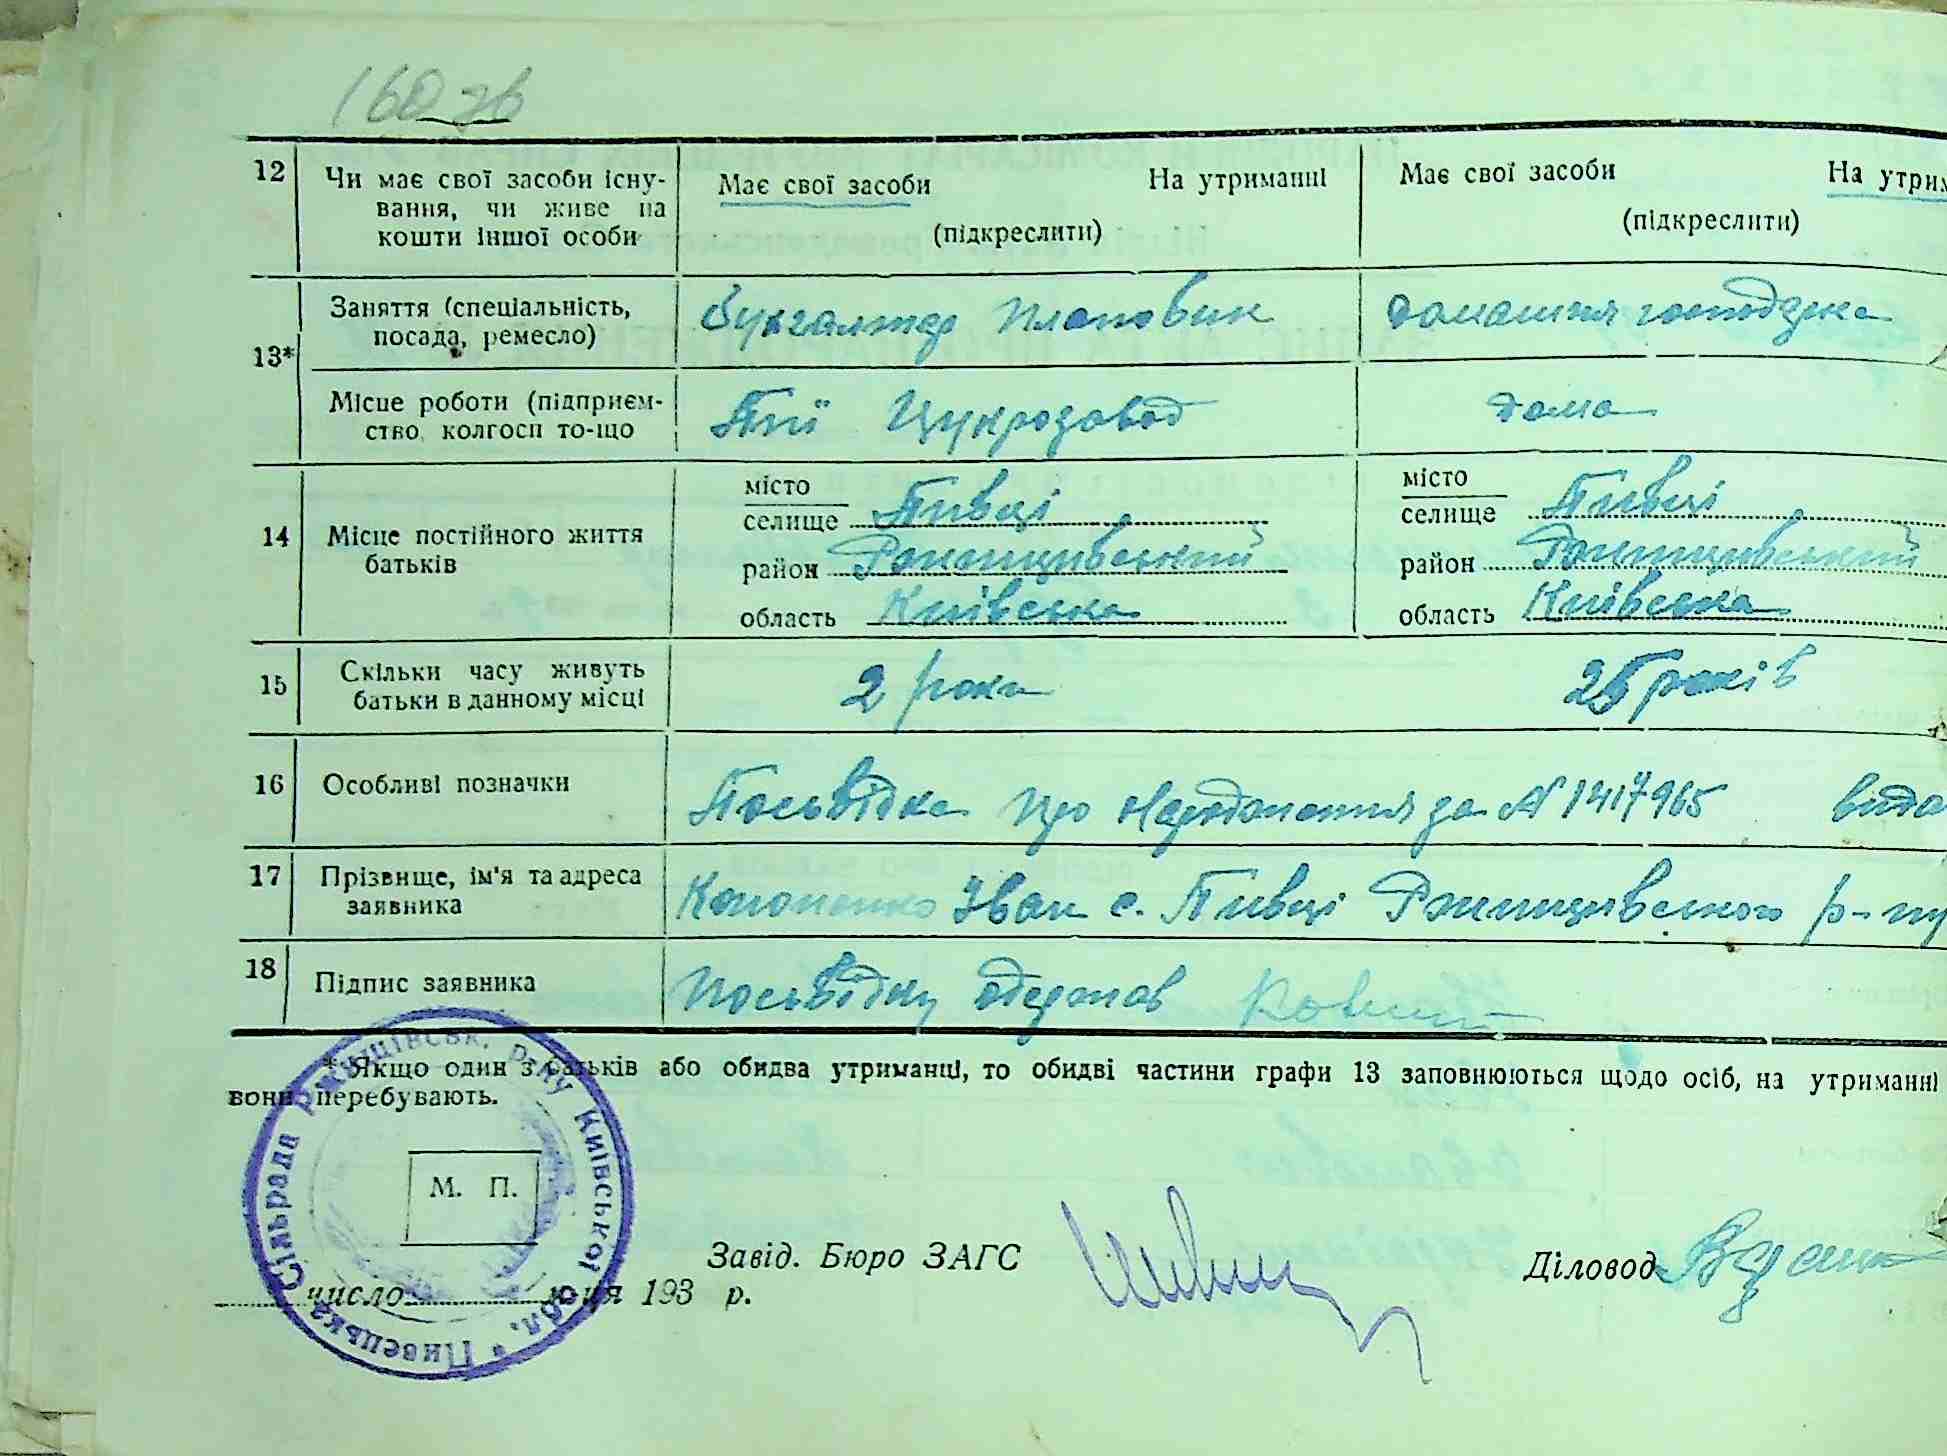 160 зв
12 Чи має свої засоби існу-
вання, чи живе на
кошти іншої особи
Має свої засоби На утриманні
(підкреслити)
Має свої засоби На утрим
(підкреслити)
13*
Заняття (спеціальність,
посада, ремесло)
Бухгалтер Плановик
домашня господарка
Місце роботи (підприєм-
ство, колгосп то-що
Цукрозавод
дома
14 Місце постійного життя
батьків
місто
селище Пивці
район Ржищивський
область Київська
місто
селище Пивці
район Ржищивський
область Київська
15 Скільки часу живуть
батьки в данному місці
2 роки
25 років
16 Особливі позначки
Посьвідка про народження за № 1417965 видо
17 Прізвище, ім'я та адреса
заявника
Кононенко Іван с. Пивці Ржищивського р-ну
18 Підпис заявника
Посьвідку одержав
* Якщо один з батьків або обидва утриманці, то обидві частини графи 13 заповнюються щодо осіб, на утриманні
вони перебувають.
Пивецька Сільрада Ржищівськ. р-ну Київської обл.
М. П.
Завід. Бюро ЗАГС
Діловод
число ця 193 р.